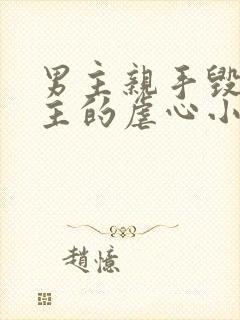 男主親手毀
主的虐心小
趙憶